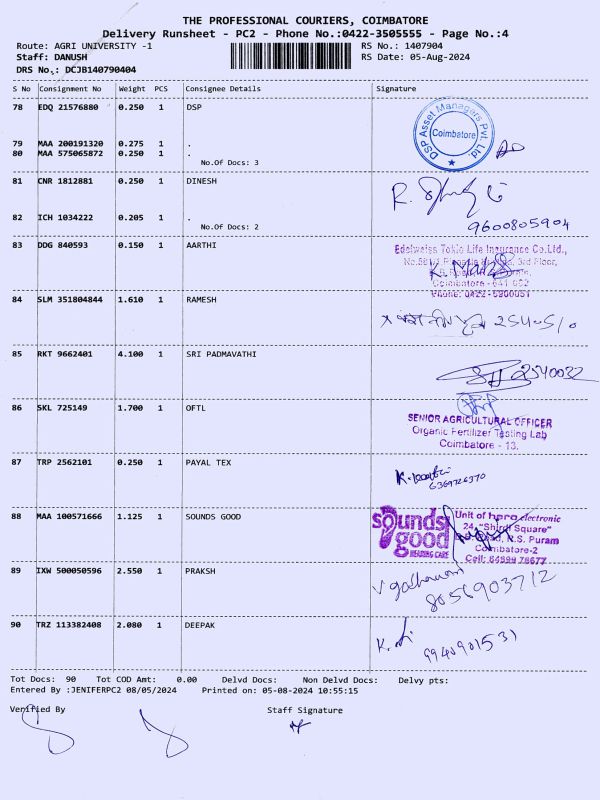 THE PROFESSIONAL COURIERS, COIMBATORE
Delivery Runsheet - PC2 - Phone No.:0422-3505555 - Page No.:4
Route: AGRI UNIVERSITY -1 RS No.: 1407904
Staff: DANUSH RS Date: 05-Aug-2024
DRS No.: DCJB140790404
S No Consignment No Weight PCS Consignee Details Signature
78 EDQ 21576880 0.250 1 DSP
DSP Asset Managers Pvt. Ltd.
Coimbatore
79 MAA 200191320 0.275 1 .
80 MAA 575065872 0.250 1 .
No.Of Docs: 3
81 CNR 1812881 0.250 1 DINESH
82 ICH 1034222 0.205 1 .
9600805904
No.Of Docs: 2
83 DDG 840593 0.150 1 AARTHI
Edelweiss Tokio Life Insurance Co.Ltd.,
3rd Floor,
Coimbatore - 641 002
Phone: 0422 -
84 SLM 351804844 1.610 1 RAMESH
85 RKT 9662401 4.100 1 SRI PADMAVATHI
2540032
86 SKL 725149 1.700 1 OFTL
SENIOR AGRICULTURAL OFFICER
Organic Fertilizer Testing Lab
Coimbatore - 13.
87 TRP 2562101 0.250 1 PAYAL TEX
6369726370
88 MAA 100571666 1.125 1 SOUNDS GOOD
sounds good
HEARING CARE
Unit of hpra electronic
24, "Shirdi Square"
R.S. Puram
Coimbatore-2
Cell: 64999 78677
89 IXW 500050596 2.550 1 PRAKSH
8056903712
90 TRZ 113382408 2.080 1 DEEPAK
9940901531
Tot Docs: 90 Tot COD Amt: 0.00 Delvd Docs: Non Delvd Docs: Delvy pts:
Entered By :JENIFERPC2 08/05/2024 Printed on: 05-08-2024 10:55:15
Verified By Staff Signature